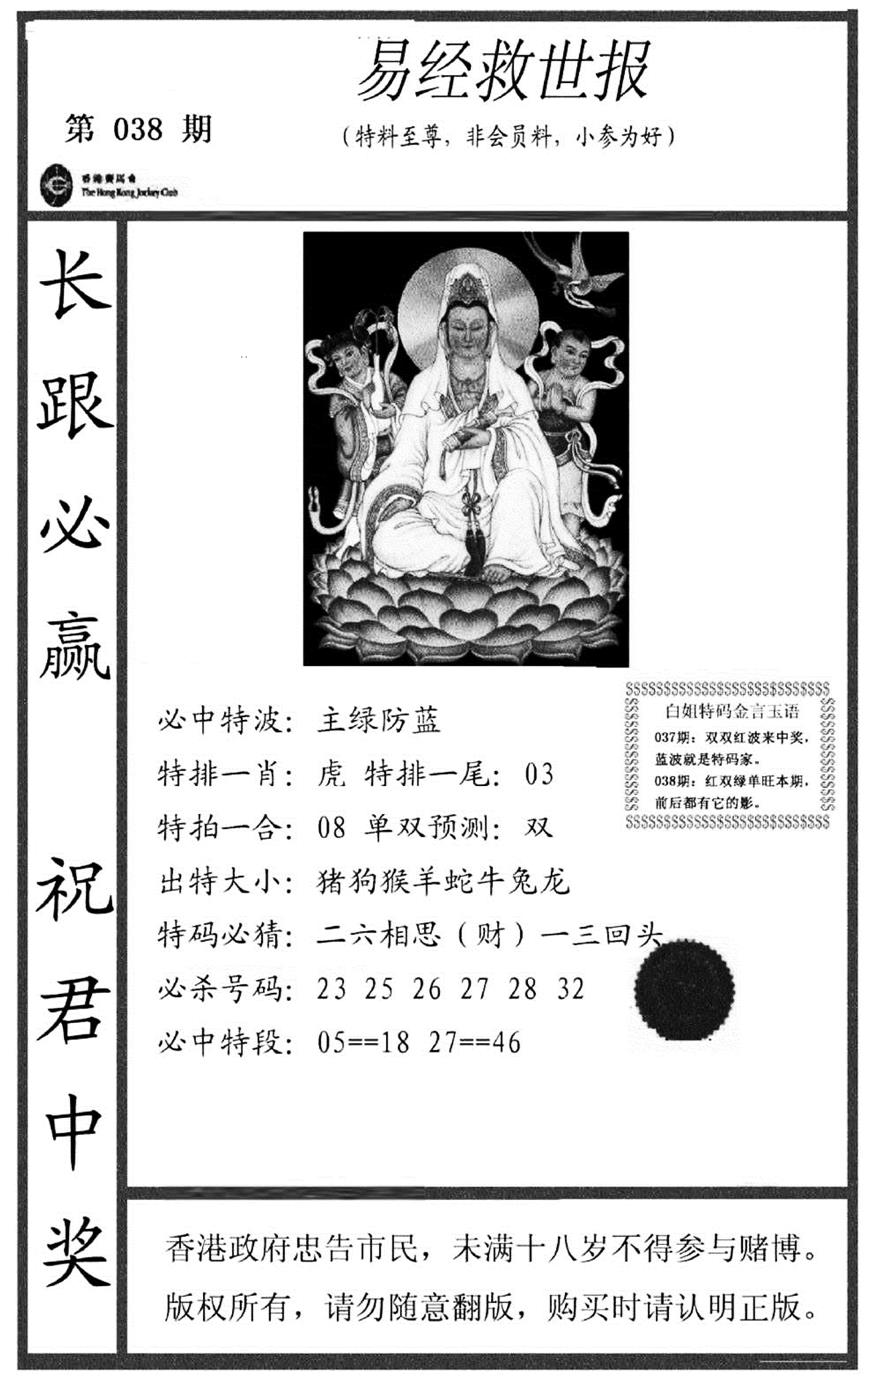 易经救世报
第 038 期
（特料至尊，非会员料，小参为好）
香港賽馬會
The Hong Kong Jockey Club
长跟必赢 祝君中奖
必中特波：主绿防蓝
特排一肖：虎 特排一尾：03
特拍一合：08 单双预测：双
出特大小：猪狗猴羊蛇牛兔龙
特码必猜：二六相思（财）一三回头
必杀号码：23 25 26 27 28 32
必中特段：05==18 27==46
白姐特码金言玉语
037期：双双红波来中奖，
蓝波就是特码家。
038期：红双绿单旺本期，
前后都有它的影。
香港政府忠告市民，未满十八岁不得参与赌博。
版权所有，请勿随意翻版，购买时请认明正版。